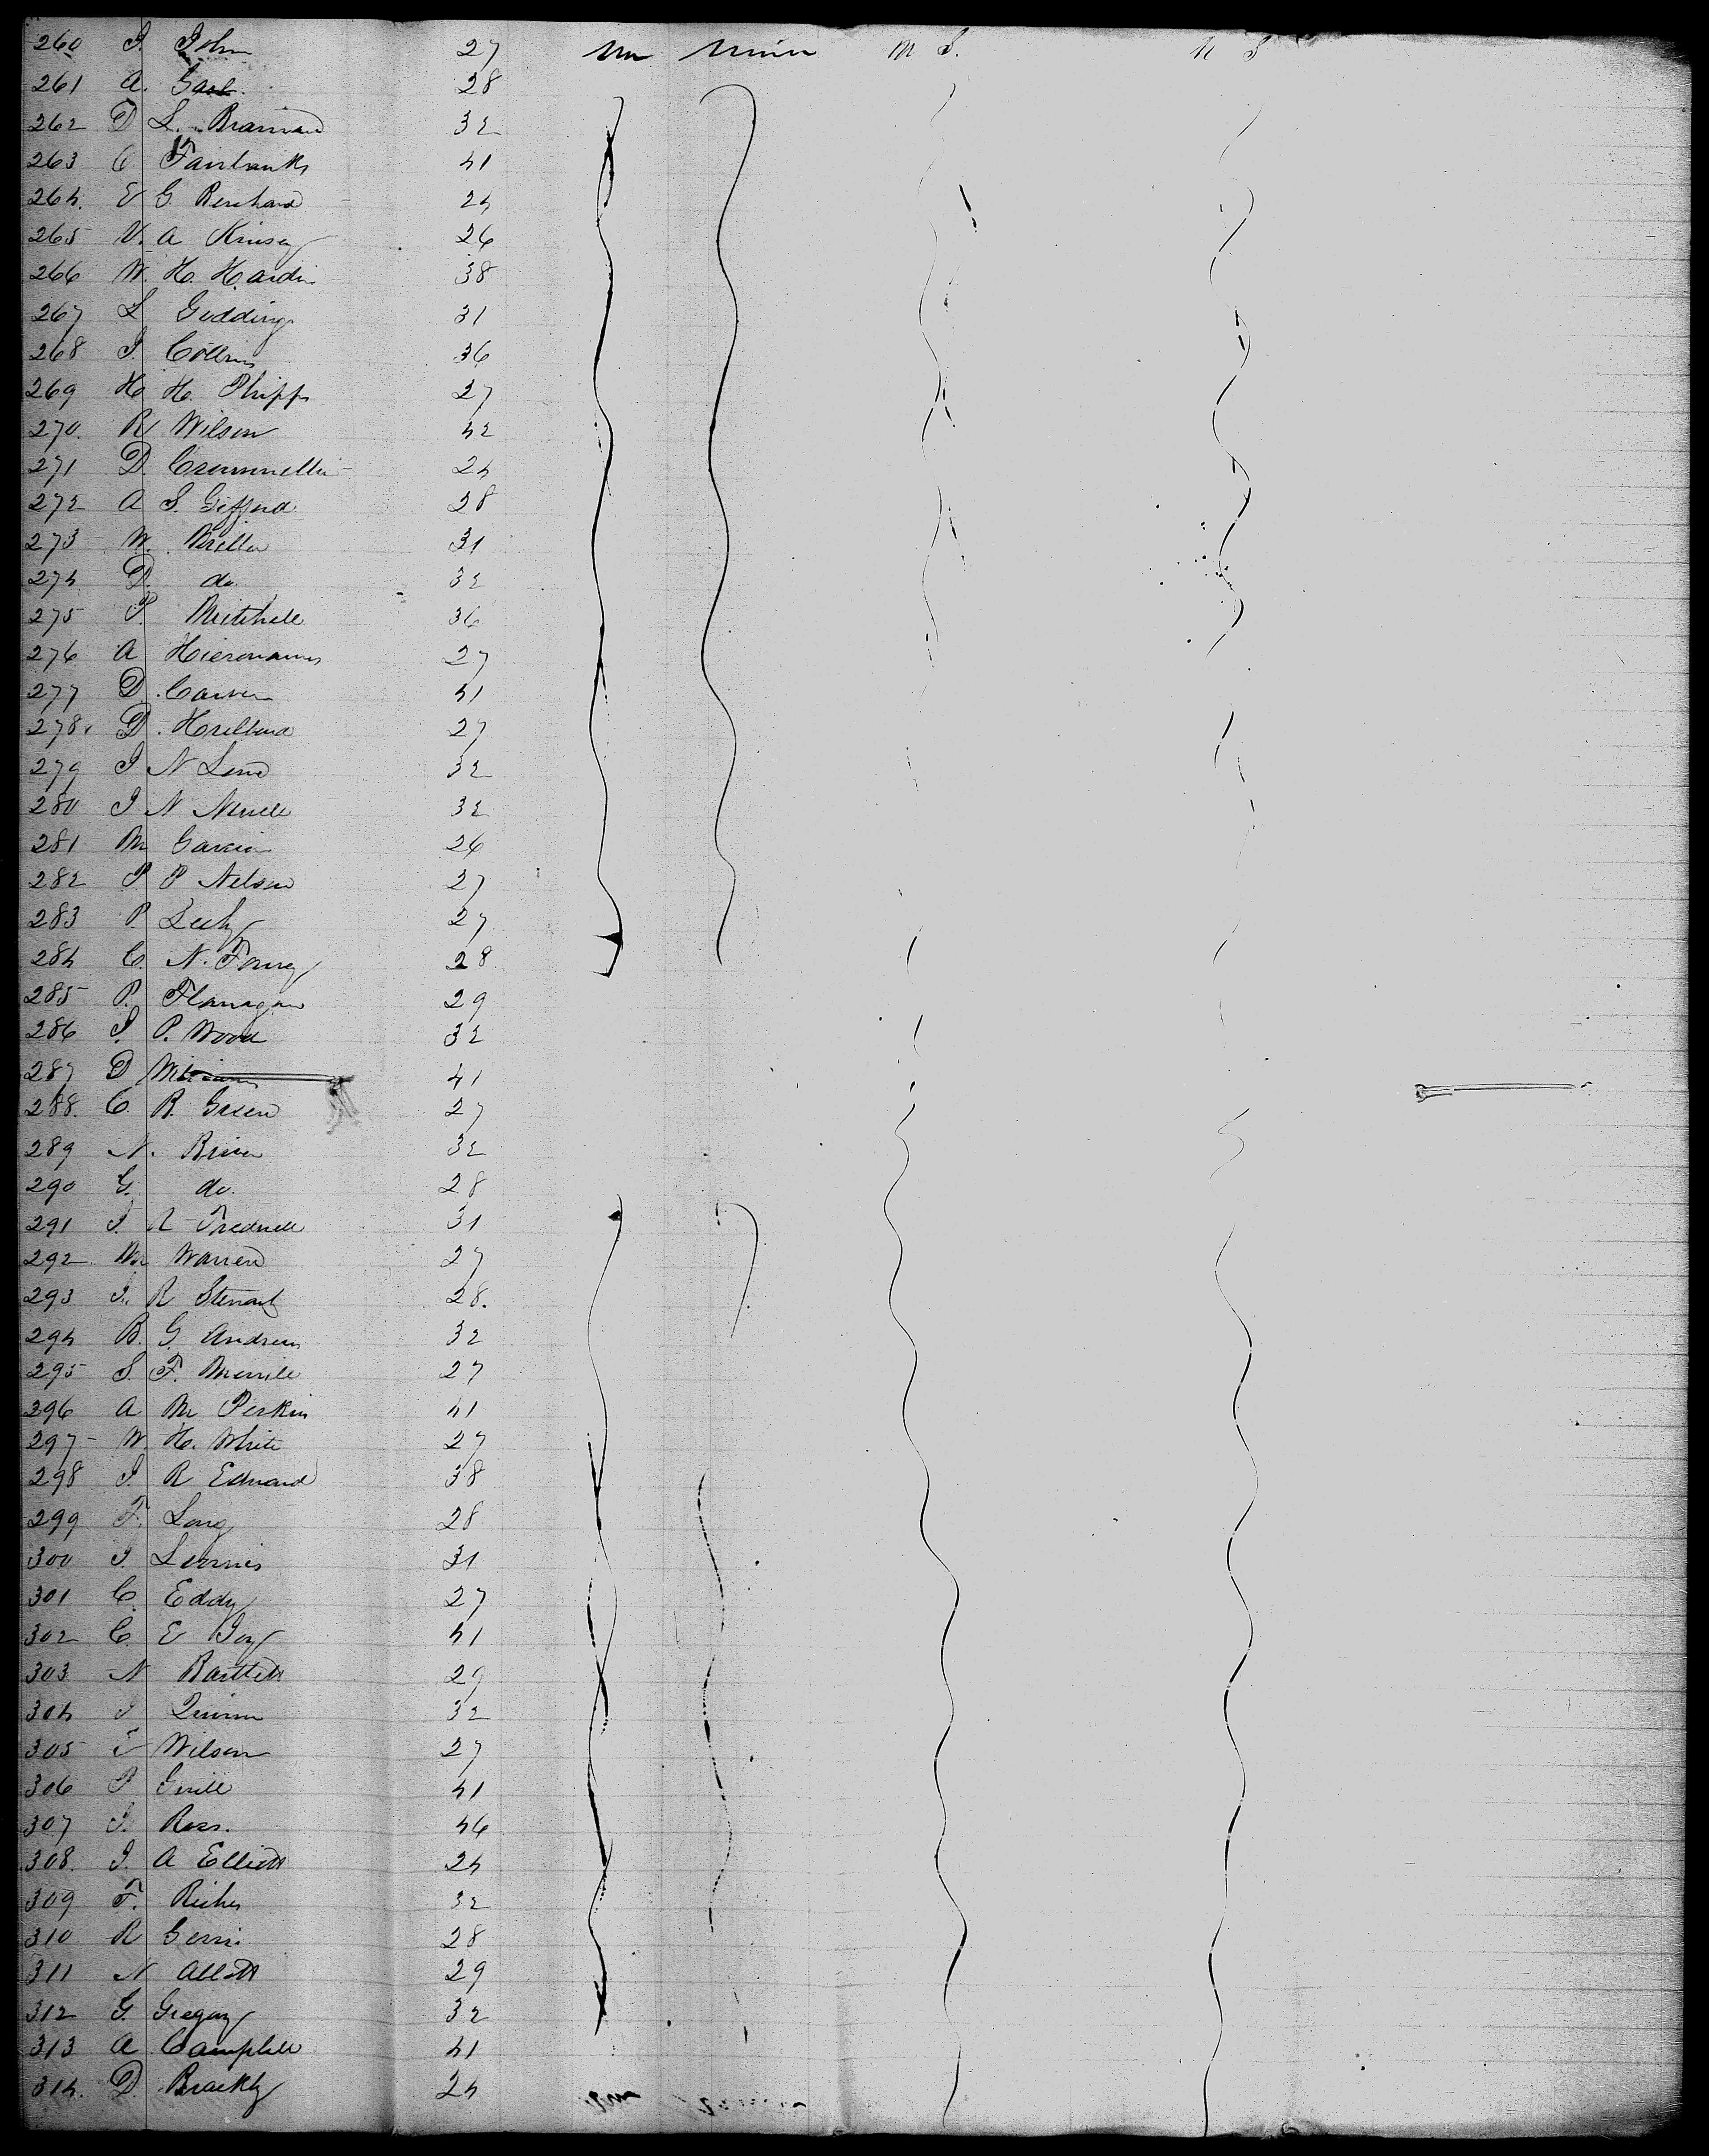 260 J. John 27 M Miner U S. U S
261 A. Gast. 28
262 D L. Brainard 32
263 C Fairbanks 41
264. E G. Renchard 24
265 V. A Kinsey 26
266 W. H. Hardin 38
267 L Giddings 31
268 J. Collins 36
269 H H. Phipps 27
270. R Wilson 42
271 D. 24
272 A S. Gifford 28
273 W. Miller 31
274 D. do. 32
275 P. Mitchell 36
276 A Hieronamus 27
277 D. Carver 41
278. D. Hallbard 27
279 J N Lend 32
280 J N 32
281 M Garcia 26
282 P P Nelson 27
283 P. 27
284 C. N. 28
285 P. Flanagan 29
286 J. P. Wood 32
287 D Williams 41
288. C. R. Green 27
289 N. 32
290 G. do. 28
291 J. R Tredwell 31
292. M Warren 27
293 J. R Stewart 28.
294 B. G. Andrews 32
295 S. F. Merrill 27
296 A M Perkins 41
297 W. H. White 27
298 J. R Edward 38
299 F. Long 28
300 J. Loomis 31
301 C. Eddy 27
302 C. E Joy 41
303 N Bartlett 29
304 J Quinn 32
305 E Wilson 27
306 P 41
307 J. Ross. 46
308. J. A Elliott 24
309 F. 32
310 R 28
311 N Allott 29
312 G. Gregory 32
313 A Campbell 41
314. D. Brackly 24